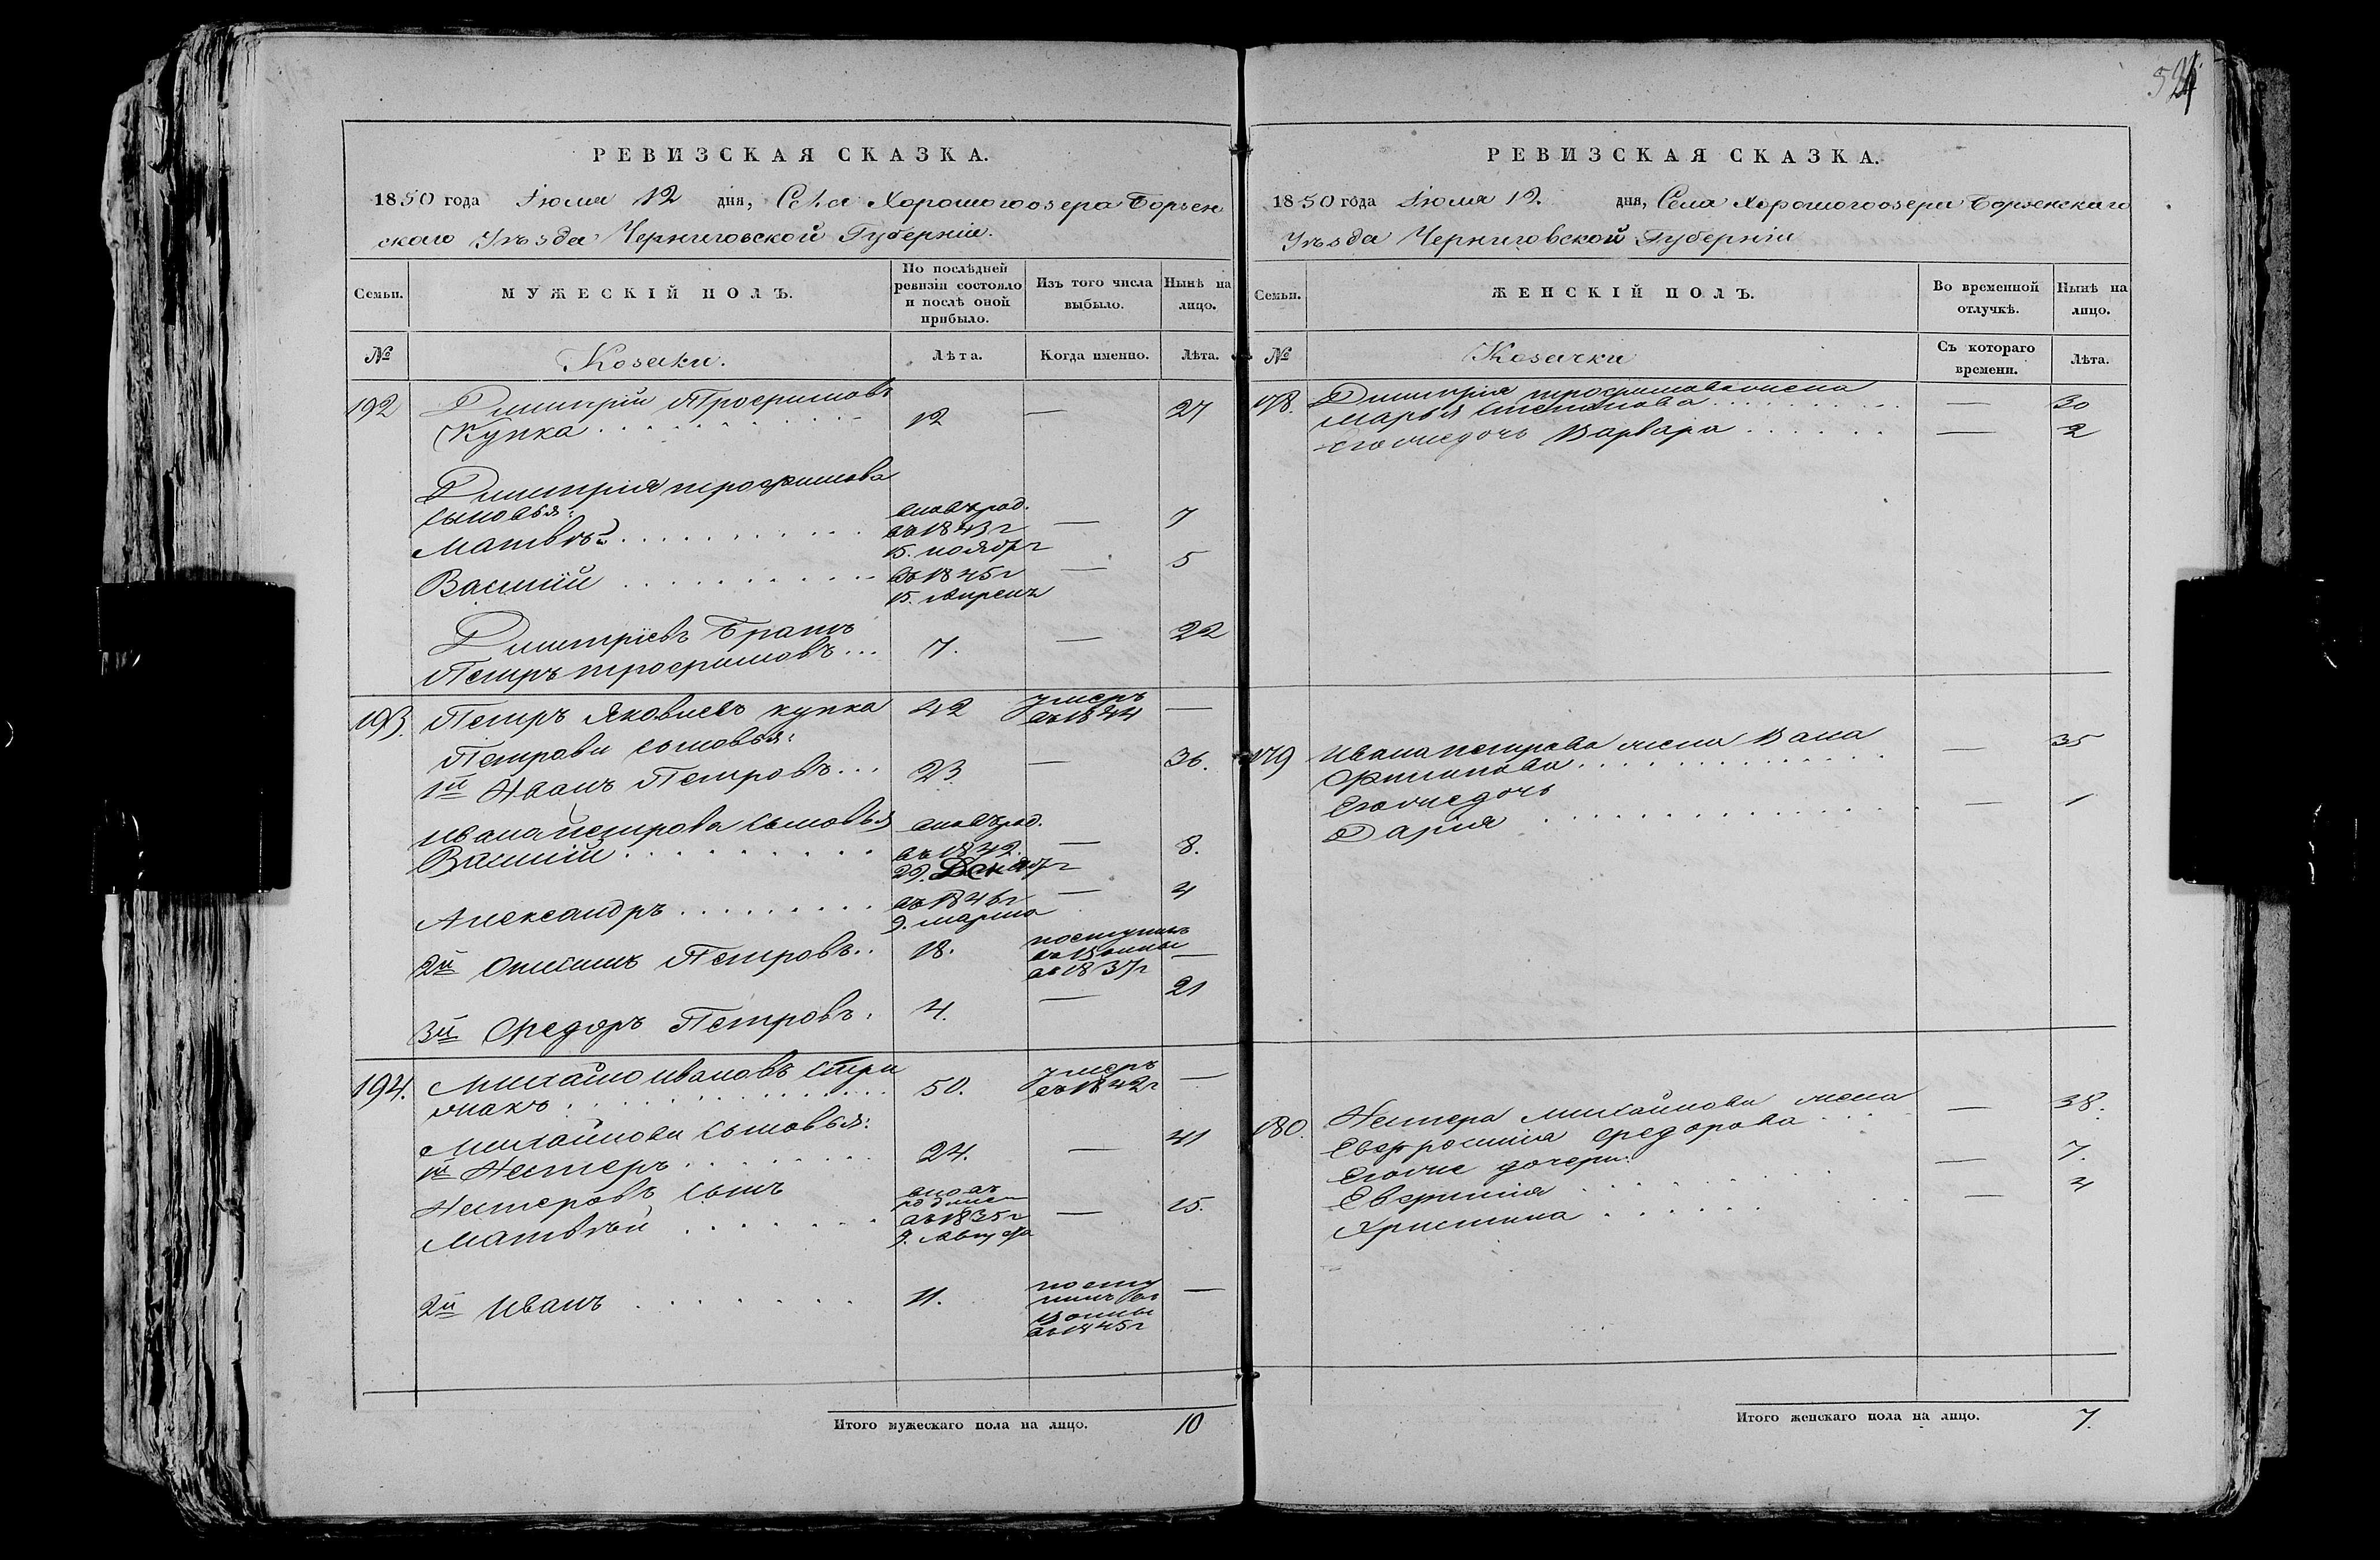 524
РЕВИЗСКАЯ СКАЗКА.
1850 года Іюля 12 дня, Села Хорошогоозера Борзен
скаго Уѣзда Черниговской Губерніи.
Семьи.
МУЖЕСКІЙ ПОЛЪ.
По послѣдней
ревизіи состояло
и послѣ оной
прибыло.
Изъ того числа
выбыло.
Нынѣ на
лицо.
№
Козаки.
Лѣта.
Когда именно.
Лѣта.
192 Димитрій Трофимовъ
Купка 12 — 27
Димитрія трофимова
сыновья:
Матвѣй вновь род. въ 1843 г — 7
15. ноябр
Василій въ 1845 г — 5
15. Апреля
Димитріевъ Братъ
Петръ трофимовъ 7. — 22
193. Петръ Яковлевъ купка 42 умеръ въ 1844 —
Петрови сыновья:
1й Иванъ Петровъ 23 — 36.
Ивана петрова сыновья вновь род.
Василій въ 1842. — 8.
29. Декабр
Александръ въ 1846 г — 4
9. марта
2й Онисимъ Петровъ 18. поступилъ
въ Воины
въ 1837 г —
3й Федоръ Петровъ. 4. — 21
194. Михайло ивановъ Стри
жакъ 50. умеръ въ 1842 г —
Михайлови сыновья:
1й Нестеръ 24. — 41
Нестеровъ сынъ
Матвѣй въ 1835 г — 15.
9. Августа
2й Иванъ 11. посту
пилъ въ
Воины
въ 1845 г —
Итого мужескаго пола на лицо. 10
РЕВИЗСКАЯ СКАЗКА.
1850 года Іюля 12. дня, Села Хорошогоозера Борзенскаго
Уѣзда Черниговской Губерніи
Семьи.
ЖЕНСКІЙ ПОЛЪ.
Во временной
отлучкѣ.
Нынѣ на
лицо.
№
Козачки
Съ котораго
времени.
Лѣта.
178. Димитрія трофимова жена
Марья Степанова — 30
егоже дочь Варвара — 2
179 Ивана петрова жена
Филипова — 35
Егоже дочь
Дарія — 1
180. Нестера михайлова жена
Евфросинія Федорова — 38.
Егоже дочери:
Евфимія — 7.
Христина — 4
Итого женскаго пола на лицо. 7.